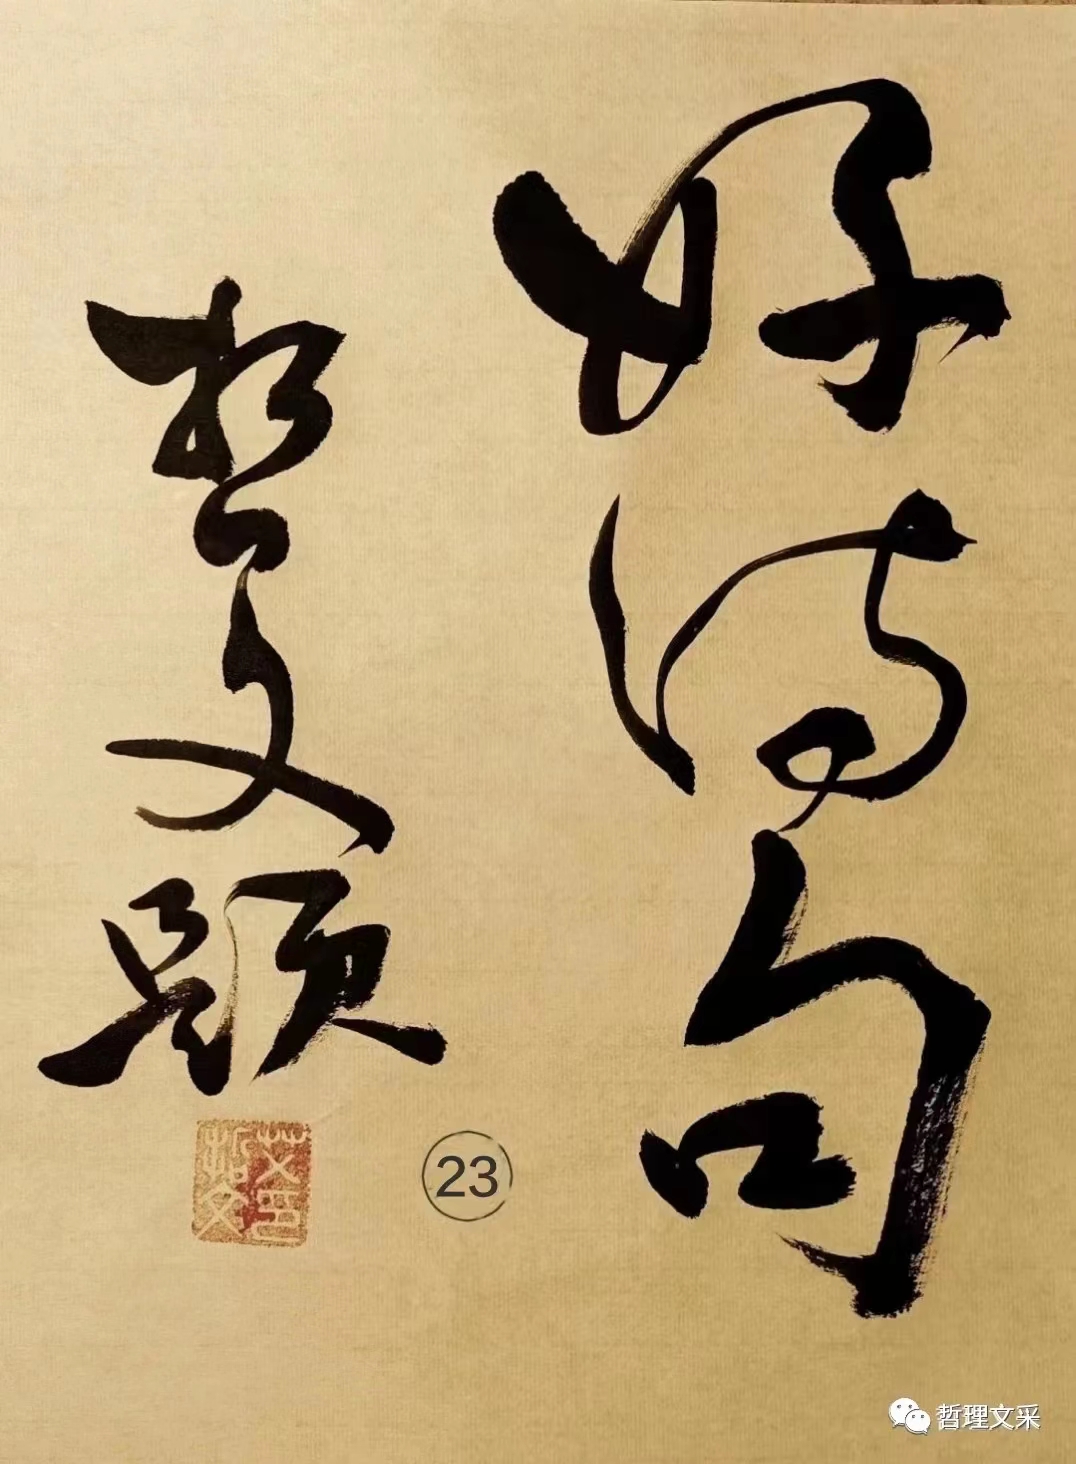 好诗句
哲文题
23
哲理文采